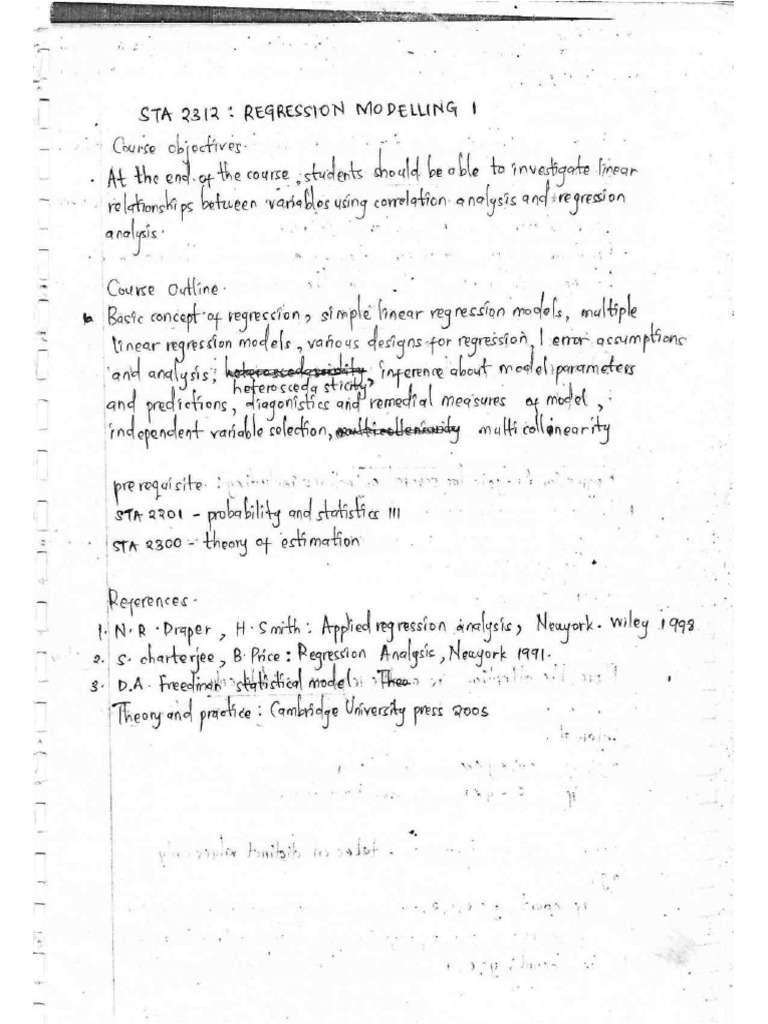 STA 2312 : REGRESSION MODELLING I
Course objectives.
At the end of the course, students should be able to investigate linear
relationships between variables using correlation analysis and regression
analysis.
Course Outline.
Basic concept of regression, simple linear regression models, multiple
linear regression models, various designs for regression, error assumptions
and analysis, heteroscedasticity, inference about model parameters
and predictions, diagonistics and remedial measures of model,
independent variable selection, multicollinearity
prerequisite :
STA 2201 - probability and statistics III
STA 2300 - theory of estimation
References.
1. N.R. Draper, H. Smith : Applied regression analysis, Newyork. Wiley 1998
2. S. charterjee, B. Price : Regression Analysis, Newyork 1991.
3. D.A. Freedman statistical model : Theo
Theory and practice : Cambridge University press 2005